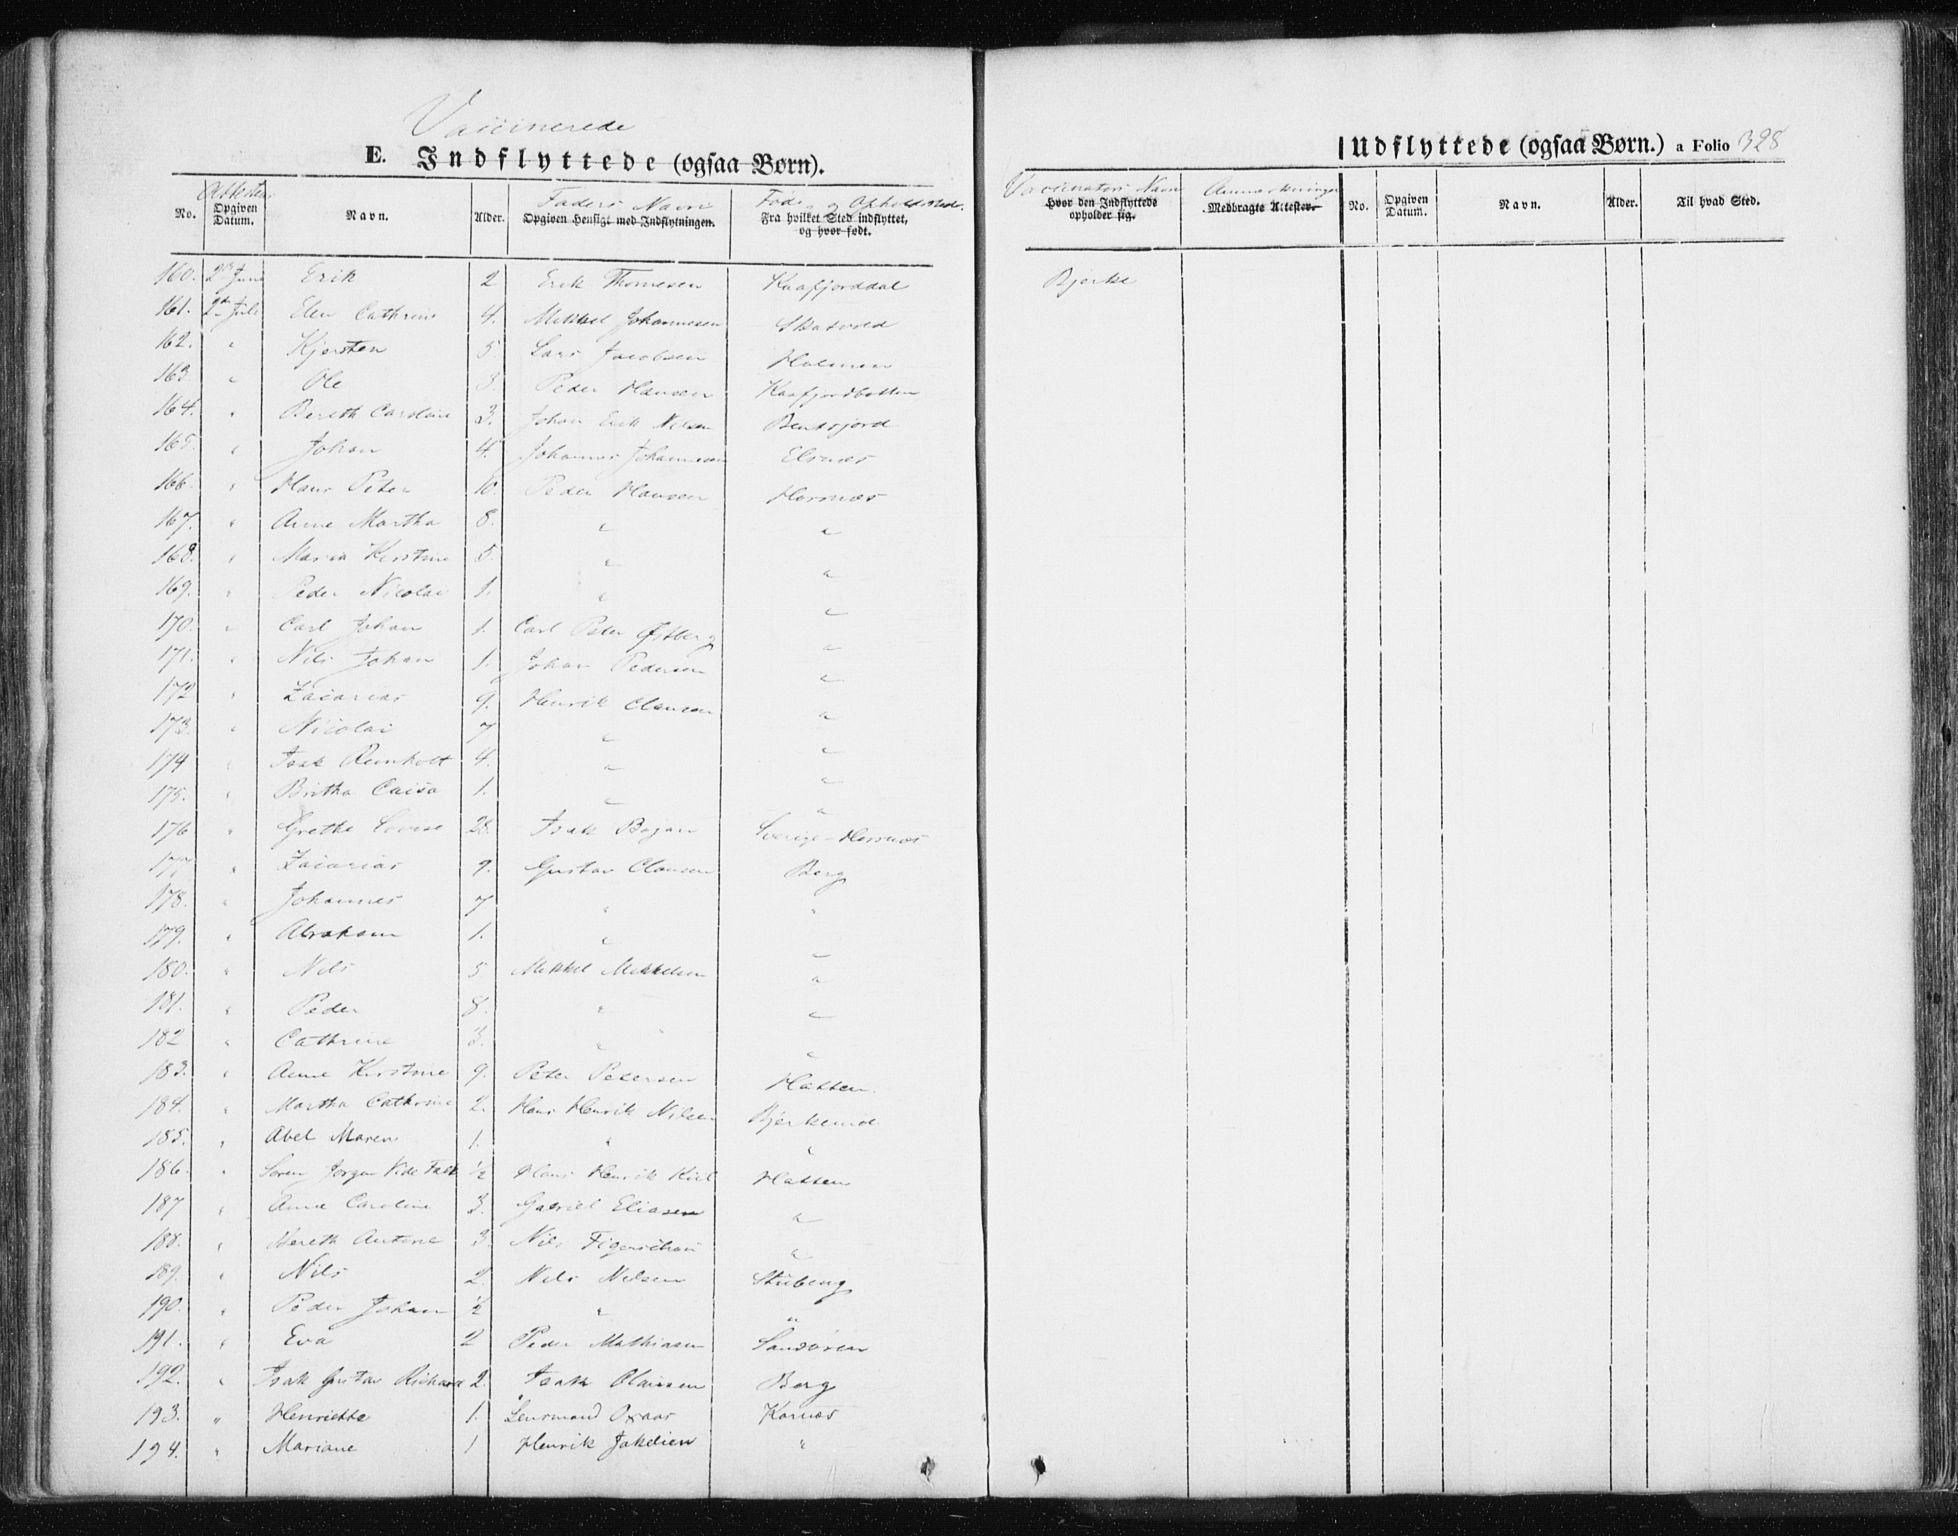 Vaccinerede
E. Indflyttede (ogsaa Børn).
No. Opgiven Datum. Navn. Alder. Faders Navn Opgiven Hensigt med Indflytningen. Føde og Opholdssted. Fra hvilket Sted indflyttet, og hvor født.
160. 2den Juni Erik 2 Erik Thomesen Kaafjorddal
161. 2den Juli Elen Cathrine 4. Mikkel Johannesen Skatvold
162. " Kjersten 5. Lars Jacobsen Holmen
163 " Ole 3 Peder Hansen Kaafjordbotten
164. " Bereth Caroline 3. Johan Erik Nilsen Bentsjord
165. " Johan 4. Johannes Johannesen Elsnæs
166. " Hans Peter 10. Peder Hansen Horsnæs
167. " Anne Martha 8. " "
168. " Maria Kirstine 5. " "
169. " Peder Nicolai 1. " "
170. " Carl Johan 1. Carl Peter Østberg "
171. " Nils Johan 1. Johan Pedersen "
172 " Zacarias 9. Henrik Clausen "
173. " Nicolai 7 " "
174 " Isak Reinholt 4. " "
175. " Britha Caisa 1. " "
176 " Grethe Lovise 28. Isak Bajan Sverige-Horsnæs
177 " Zacarias 9. Gustav Clausen Berg
178. " Johannes 7 " "
179. " Abraham 1. " "
180. " Nils 5 Mikkel Mikkelsen "
181. " Peder 8. " "
182 " Cathrine 3. " "
183. " Anne Kirstine 9. Peter Petersen Hatten.
184. " Martha Cathrine 2. Hans Henrik Nilsen
185. " Abel Maren 1. " "
186. " Søren Jørgen Falk 1/2 Hans Henrik Kiil Hatten
187 " Anne Caroline 3. Gabriel Eliasen "
188. " Bereth Antone 3. Nils Figenschou "
189. " Nils 2. Nils Nilsen Stubeng
190. " Peder Johan 1/2 " "
191. " Eva 2 Peder Mathiasen Sandøren
192. " Isak Gustav Richard 2. Isak Clausen Berg
193. " Henriette 1. Lensmand Oxaas Kornæs
194. " Mariane 1 Henrik "
Indflyttede (ogsaa Børn.) a Folio 328
Vaccinators Navn Hvor den Indflyttede opholder sig. Anmærkninger Medbragte Attester. No. Opgiven Datum. Navn. Alder. Til hvad Sted.
Bjerke